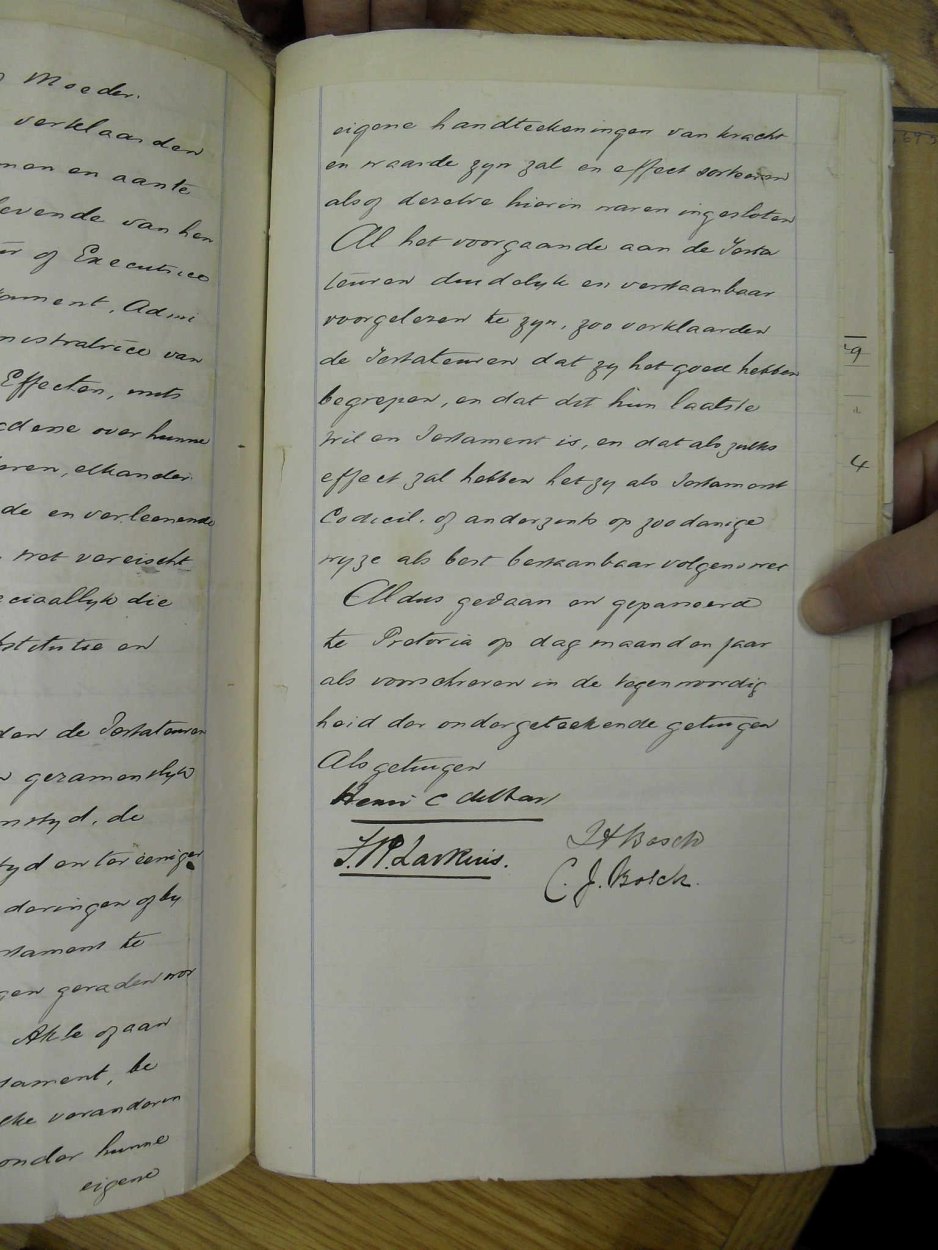 Moeder.
verklaarden
men en aante
levende van hen
ur of Executrice
tament, Admi
nistratrice van
Effecten, mits
edene over hunne
eren, elkander
de en verleenende
met vereischt
eciaallyk die
bstitutie en
den de Testateuren
gezamenlyk
nstyd, de
tyd en ter eeniger
deringen of by
stament te
gen geraden wor
Akte of aan
tament, te
elke veranderin
onder hunne
eigene
eigene handteekeningen van kracht
en waarde zyn zal en effect sorteeren
alsof dezelve hierin waren ingesloten
Al het voorgaande aan de Testa
teuren duidelyk en verstaanbaar
voorgelezen te zyn, zoo verklaarden
de Testateuren dat zy het goed hebben
begrepen, en dat dit hun laatste
wil en Testament is, en dat als zulks
effect zal hebben het zy als Testament
Codicil. of anderzints op zoodanige
wyze als best bestaanbaar volgens wet
Aldus gedaan en gepasseerd
te Pretoria op dag maand en jaar
als voorschreven in de tegenwoordig
heid der ondergeteekende getuigen
Als getuigen
Henri C
J H Bosch
C. J. Bosch.
9
4